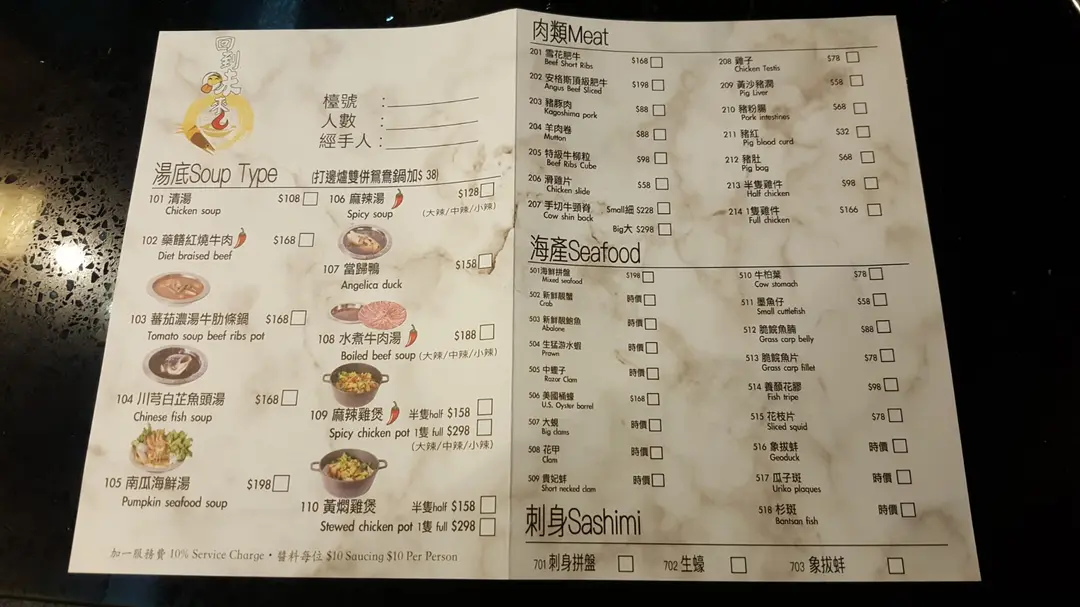 回到未來
檯號 :
人數 :
經手人 :
湯底Soup Type (打邊爐雙併鴛鴦鍋加$ 38)
101 清湯 $108
Chicken soup
102 藥膳紅燒牛肉 $168
Diet braised beef
103 蕃茄濃湯牛肋條鍋 $168
Tomato soup beef ribs pot
104 川芎白芷魚頭湯 $168
Chinese fish soup
105 南瓜海鮮湯 $198
Pumpkin seafood soup
106 麻辣湯 $128
Spicy soup (大辣/中辣/小辣)
107 當歸鴨 $158
Angelica duck
108 水煮牛肉湯 $188
Boiled beef soup (大辣/中辣/小辣)
109 麻辣雞煲 半隻half $158
Spicy chicken pot 1隻 full $298
(大辣/中辣/小辣)
110 黃燜雞煲 半隻half $158
Stewed chicken pot 1隻 full $298
加一服務費 10% Service Charge • 醬料每位 $10 Saucing $10 Per Person
肉類Meat
201 雪花肥牛 $168
Beef Short Ribs
202 安格斯頂級肥牛 $198
Angus Beef Sliced
203 豬豚肉 $88
Kagoshima pork
204 羊肉卷 $88
Mutton
205 特級牛柳粒 $98
Beef Ribs Cube
206 滑雞片 $58
Chicken slide
207 手切牛頸脊 Small細 $228
Cow shin back Big大 $298
208 雞子 $78
Chicken Testis
209 黃沙豬潤 $58
Pig Liver
210 豬粉腸 $68
Pork intestines
211 豬紅 $32
Pig blood curd
212 豬肚 $68
Pig bag
213 半隻雞件 $98
Half chicken
214 1隻雞件 $166
Full chicken
海產Seafood
501海鮮拼盤 $198
Mixed seafood
502 新鮮靚蟹 時價
Crab
503 新鮮靚鮑魚 時價
Abalone
504 生猛游水蝦 時價
Prawn
505 中蟶子 時價
Razor Clam
506 美國桶蠔 $168
U.S. Oyster barrel
507 大蜆 時價
Big clams
508 花甲 時價
Clam
509 貴妃蚌 時價
Short necked clam
510 牛柏葉 $78
Cow stomach
511 墨魚仔 $58
Small cuttlefish
512 脆鯇魚腩 $88
Grass carp belly
513 脆鯇魚片 $78
Grass carp fillet
514 養顏花膠 $98
Fish tripe
515 花枝片 $78
Sliced squid
516 象拔蚌 時價
Geoduck
517 瓜子斑 時價
Uriko plaques
518 杉斑 時價
Bantsan fish
刺身Sashimi
701 刺身拼盤 702 生蠔 703 象拔蚌